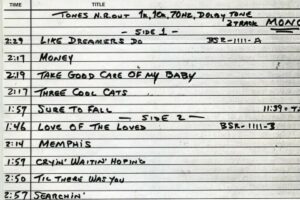 TIME TITLE
TONES N.R.OUT 1K, 10K, 70HZ, DOLBY TONE
2 TRACK MONO
— SIDE 1 —
2:29 LIKE DREAMERS DO BSR-1111-A
2:17 MONEY
2:19 TAKE GOOD CARE OF MY BABY
2:17 THREE COOL CATS
1:57 SURE TO FALL 11:39
— SIDE 2 —
1:46 LOVE OF THE LOVED BSR-1111-B
2:14 MEMPHIS
1:59 CRYIN' WAITIN' HOPING
2:50 TIL THERE WAS YOU
2:57 SEARCHIN'